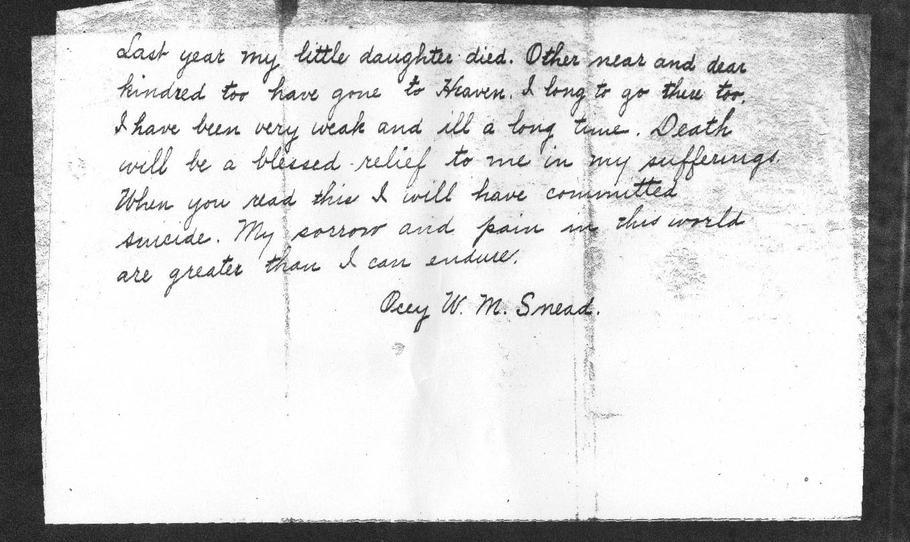 Last year my little daughter died. Other near and dear
kindred too have gone to Heaven. I long to go there too.
I have been very weak and ill a long time. Death
will be a blessed relief to me in my sufferings.
When you read this I will have committed
suicide. My sorrow and pain in this world
are greater than I can endure.
Ocey W. M. Snead.